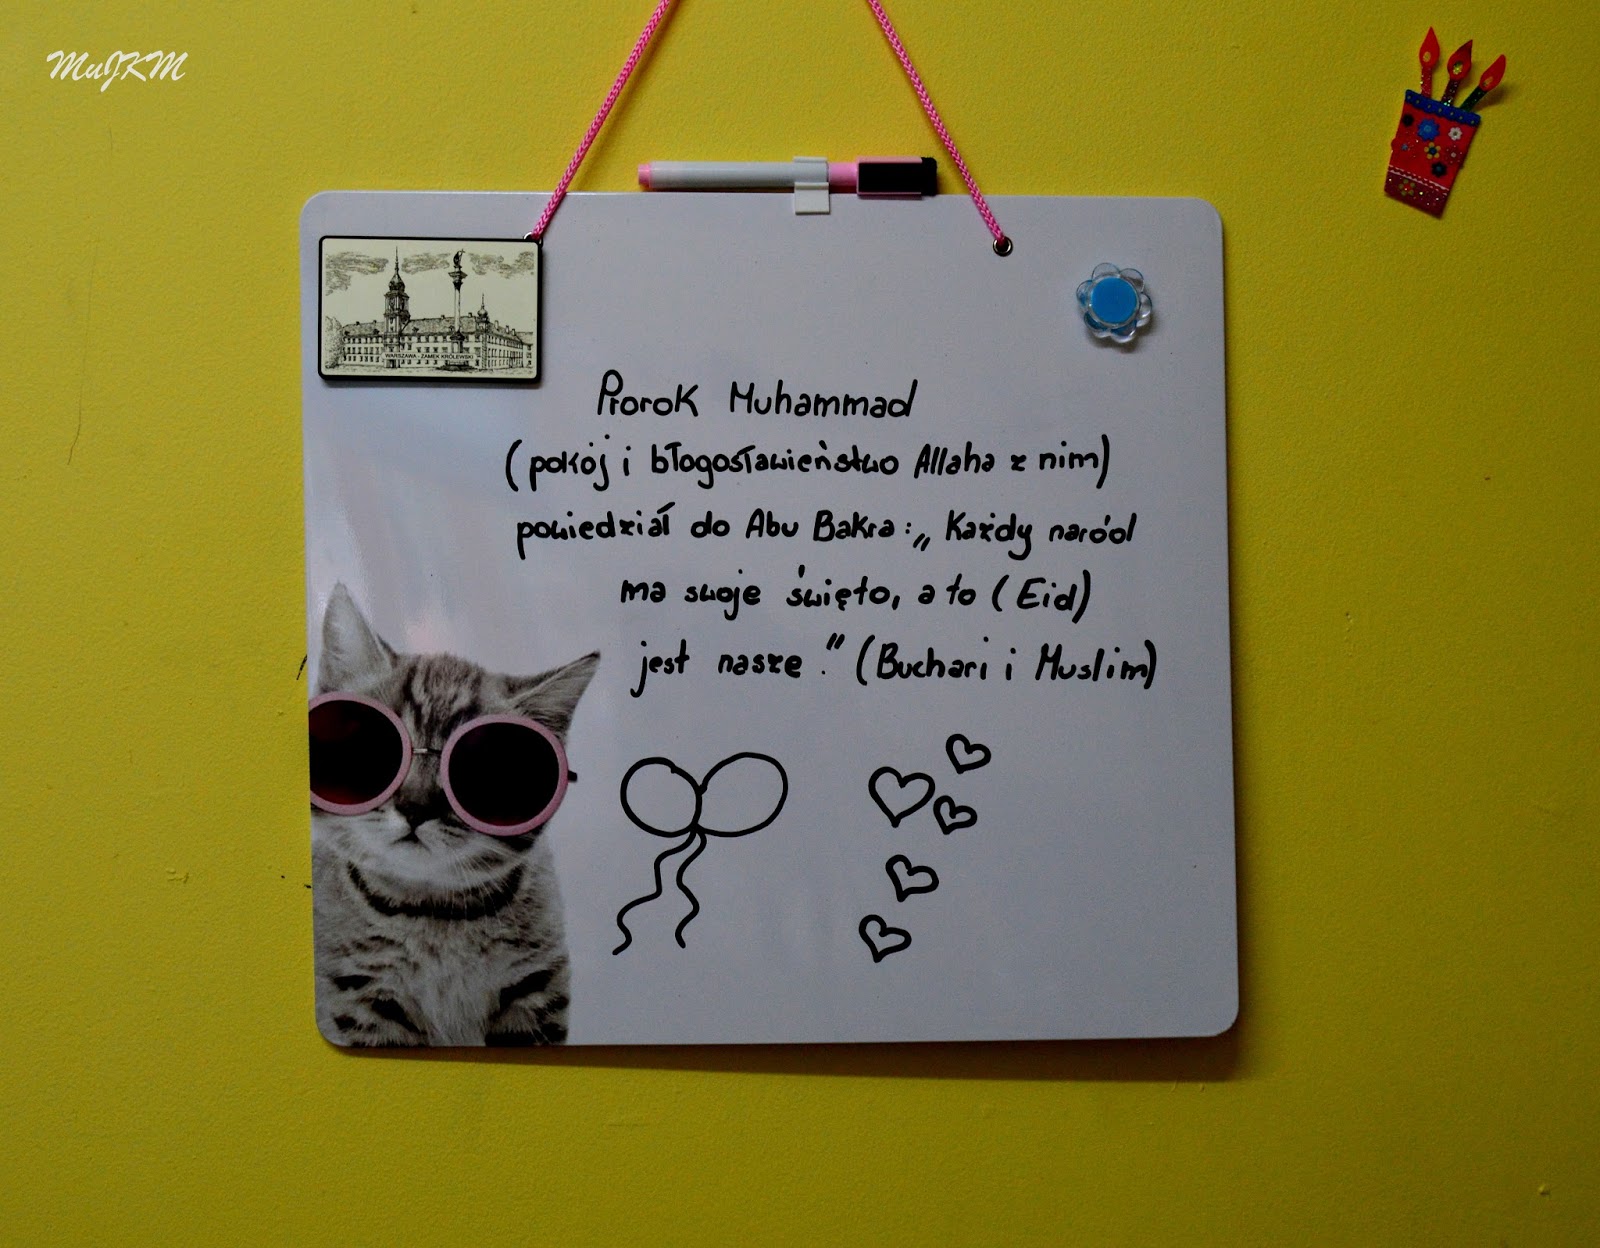 MuJKM
WARSZAWA - ZAMEK KRÓLEWSKI
Prorok Muhammad
(pokój i błogosławieństwo Allaha z nim)
powiedział do Abu Bakra: „Każdy naród
ma swoje święto, a to (Eid)
jest nasze." (Buchari i Muslim)